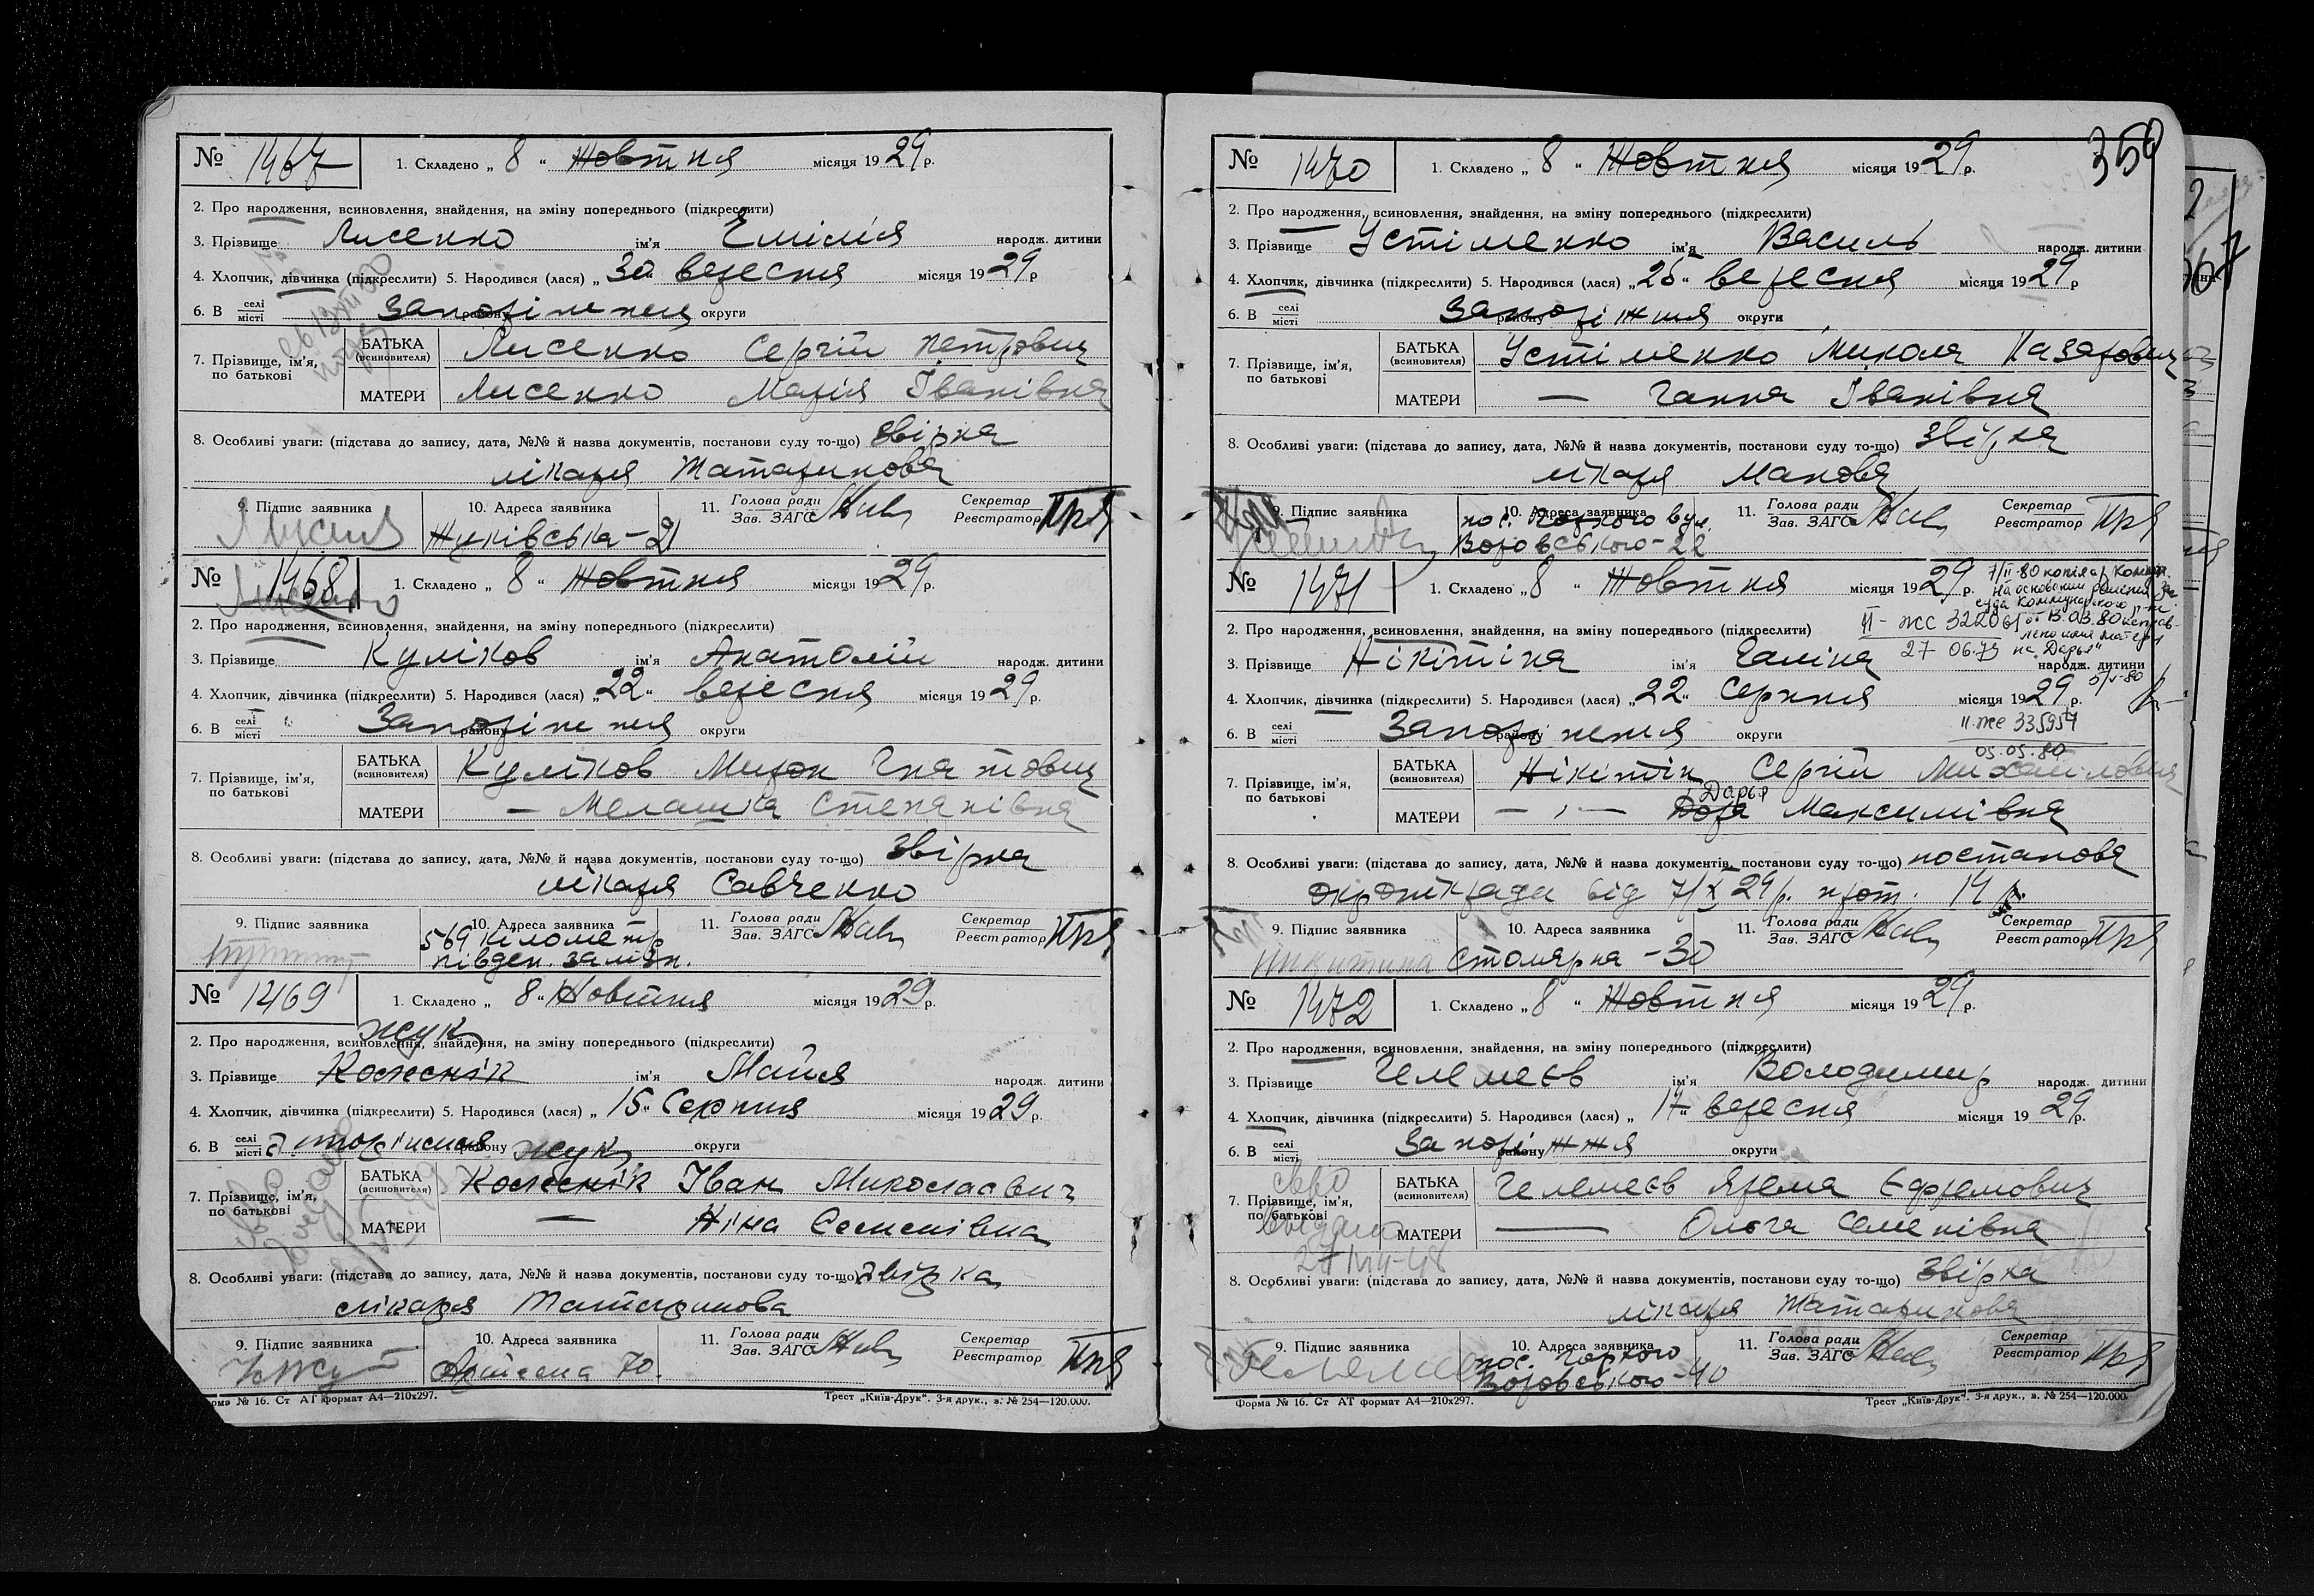 № 1467 1. Складено „ 8 “ Жовтня місяця 1929 р.
2. Про народження, всиновлення, знайдення, на зміну попереднього (підкреслити)
3. Прізвище Лисенко ім'я Емілія народж. дитини
4. Хлопчик, дівчинка (підкреслити) 5. Народився (лася) „ 30 “ вересня місяця 1929 р
6. В селі місті Запоріжжя району округи
7. Прізвище, ім'я, по батькові БАТЬКА (всиновителя) Лисенко Сергій Петрович
МАТЕРИ Лисенко Марія Іванівна
8. Особливі уваги: (підстава до запису, дата, №№ й назва документів, постанови суду то-що) звірка
лікаря Татаринова
9. Підпис заявника 10. Адреса заявника 11. Голова ради Зав. ЗАГС Секретар Реєстратор
Жуківська-21
№ 1468 1. Складено „ 8 “ Жовтня місяця 1929 р.
2. Про народження, всиновлення, знайдення, на зміну попереднього (підкреслити)
3. Прізвище Куліков ім'я Анатолій народж. дитини
4. Хлопчик, дівчинка (підкреслити) 5. Народився (лася) „ 22 “ вересня місяця 1929 р.
6. В селі місті Запоріжжя району округи
7. Прізвище, ім'я, по батькові БАТЬКА (всиновителя) Куліков Мирон Гнатович
МАТЕРИ — Мелашка Степанівна
8. Особливі уваги: (підстава до запису, дата, №№ й назва документів, постанови суду то-що) звірка
лікаря Савченко
9. Підпис заявника 10. Адреса заявника 11. Голова ради Зав. ЗАГС Секретар Реєстратор
569 кілометр
півден. залізн.
№ 1469 1. Складено „ 8 “ Жовтня місяця 1929 р.
Жук
2. Про народження, всиновлення, знайдення, на зміну попереднього (підкреслити)
3. Прізвище ім'я Майя народж. дитини
4. Хлопчик, дівчинка (підкреслити) 5. Народився (лася) „ 15 “ Серпня місяця 1929 р.
6. В селі місті району Жук округи
7. Прізвище, ім'я, по батькові БАТЬКА (всиновителя) Іван Миколаєвич
МАТЕРИ — Ніна Семенівна
8. Особливі уваги: (підстава до запису, дата, №№ й назва документів, постанови суду то-що) звірка
лікаря Татаринова
9. Підпис заявника 10. Адреса заявника 11. Голова ради Зав. ЗАГС Секретар Реєстратор
Артема 70.
Форма № 16. Ст АТ формат А4—210х297. Трест „Київ-Друк“. 3-я друк., в. № 254—120.000.
350
№ 1470 1. Складено „ 8 “ Жовтня місяця 1929 р.
2. Про народження, всиновлення, знайдення, на зміну попереднього (підкреслити)
3. Прізвище Устіменко ім'я Василь народж. дитини
4. Хлопчик, дівчинка (підкреслити) 5. Народився (лася) „ 25 “ вересня місяця 1929 р
6. В селі місті Запоріжжя району округи
7. Прізвище, ім'я, по батькові БАТЬКА (всиновителя) Устіменко Микола Назарович
МАТЕРИ — Ганна Іванівна
8. Особливі уваги: (підстава до запису, дата, №№ й назва документів, постанови суду то-що) звірка
лікаря Манова
9. Підпис заявника 10. Адреса заявника 11. Голова ради Зав. ЗАГС Секретар Реєстратор
пос. Горкого вул.
Воровського-22
№ 1471 1. Складено „ 8 “ Жовтня місяця 1929 р.
7/II-80 копія
на основании решения
суда Коммунарского р-на
II-жс 322061 от 13.03.80 исправлено имя матери
27 06.79 на „Дарья“
2. Про народження, всиновлення, знайдення, на зміну попереднього (підкреслити)
3. Прізвище Нікітіна ім'я Галіна народж. дитини
5/V-80
4. Хлопчик, дівчинка (підкреслити) 5. Народився (лася) „ 22 “ Серпня місяця 1929 р.
6. В селі місті Запоріжжя району округи
II-же 335954
05.05.80
7. Прізвище, ім'я, по батькові БАТЬКА (всиновителя) Нікітін Сергій Михайлович
Дарья
МАТЕРИ — „ — Дора Максимівна
8. Особливі уваги: (підстава до запису, дата, №№ й назва документів, постанови суду то-що) постанова
від 7/X 29 р. прот. 14
9. Підпис заявника 10. Адреса заявника 11. Голова ради Зав. ЗАГС Секретар Реєстратор
Никитина Столярна-30
№ 1472 1. Складено „ 8 “ Жовтня місяця 1929 р.
2. Про народження, всиновлення, знайдення, на зміну попереднього (підкреслити)
3. Прізвище Гелемеєв ім'я Володимир народж. дитини
4. Хлопчик, дівчинка (підкреслити) 5. Народився (лася) „ 17 “ вересня місяця 1929 р.
6. В селі місті Запоріжжя району округи
7. Прізвище, ім'я, по батькові БАТЬКА (всиновителя) Гелемеєв Ярема Єфремович
МАТЕРИ — Ольга Семенівна
8. Особливі уваги: (підстава до запису, дата, №№ й назва документів, постанови суду то-що) звірка
лікаря Татаринова
9. Підпис заявника 10. Адреса заявника 11. Голова ради Зав. ЗАГС Секретар Реєстратор
пос. Горкого
Воровського-40
Форма № 16. Ст АТ формат А4—210х297. Трест „Київ-Друк“. 3-я друк., в. № 254—120.000.